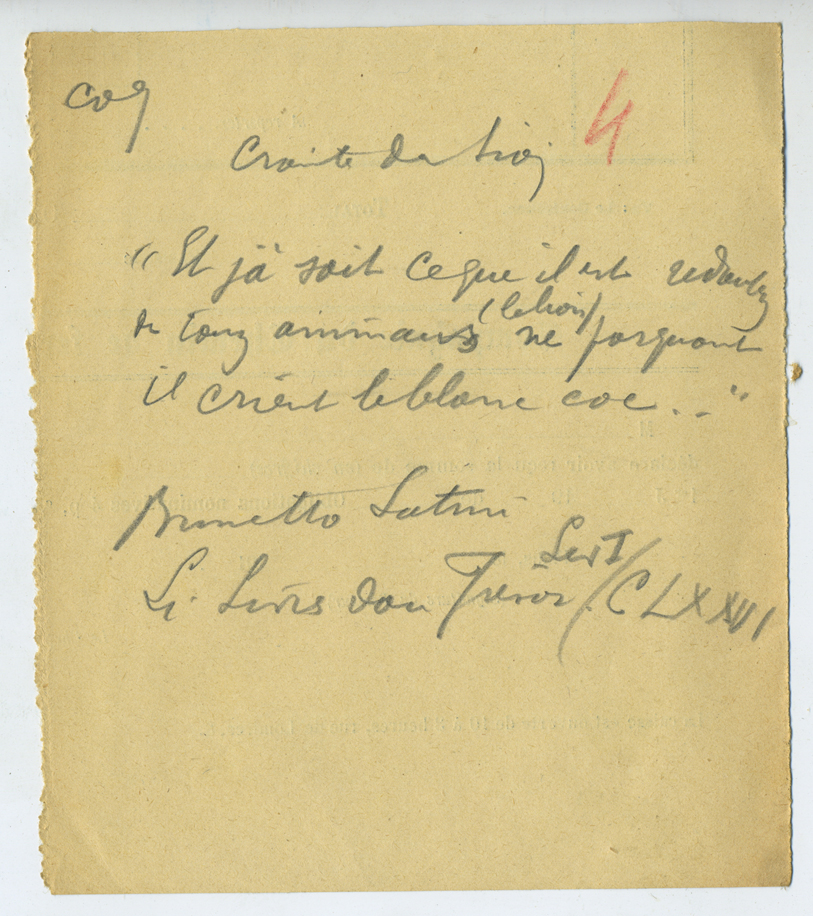 coq
4
Crainte du Lion
"Et jà soit ce que il est redoutez
(le lion)
de touz animaus ne porquant
il crient le blanc coc..."
Brunetto Latini
Li Livres dou Tresor Liv I / CLXXVI